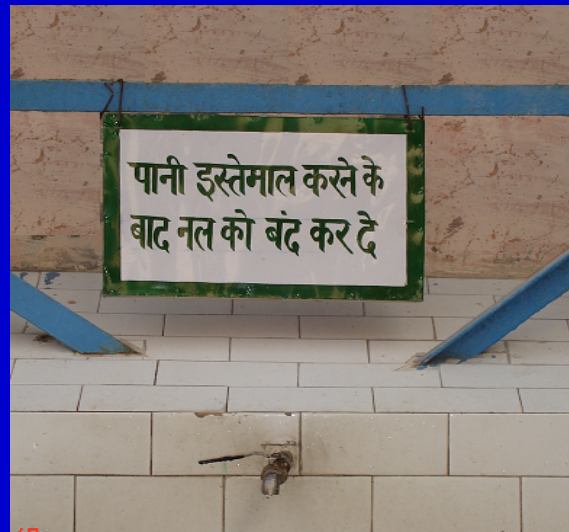 पानी इस्तेमाल करने के
बाद नल को बंद कर दे